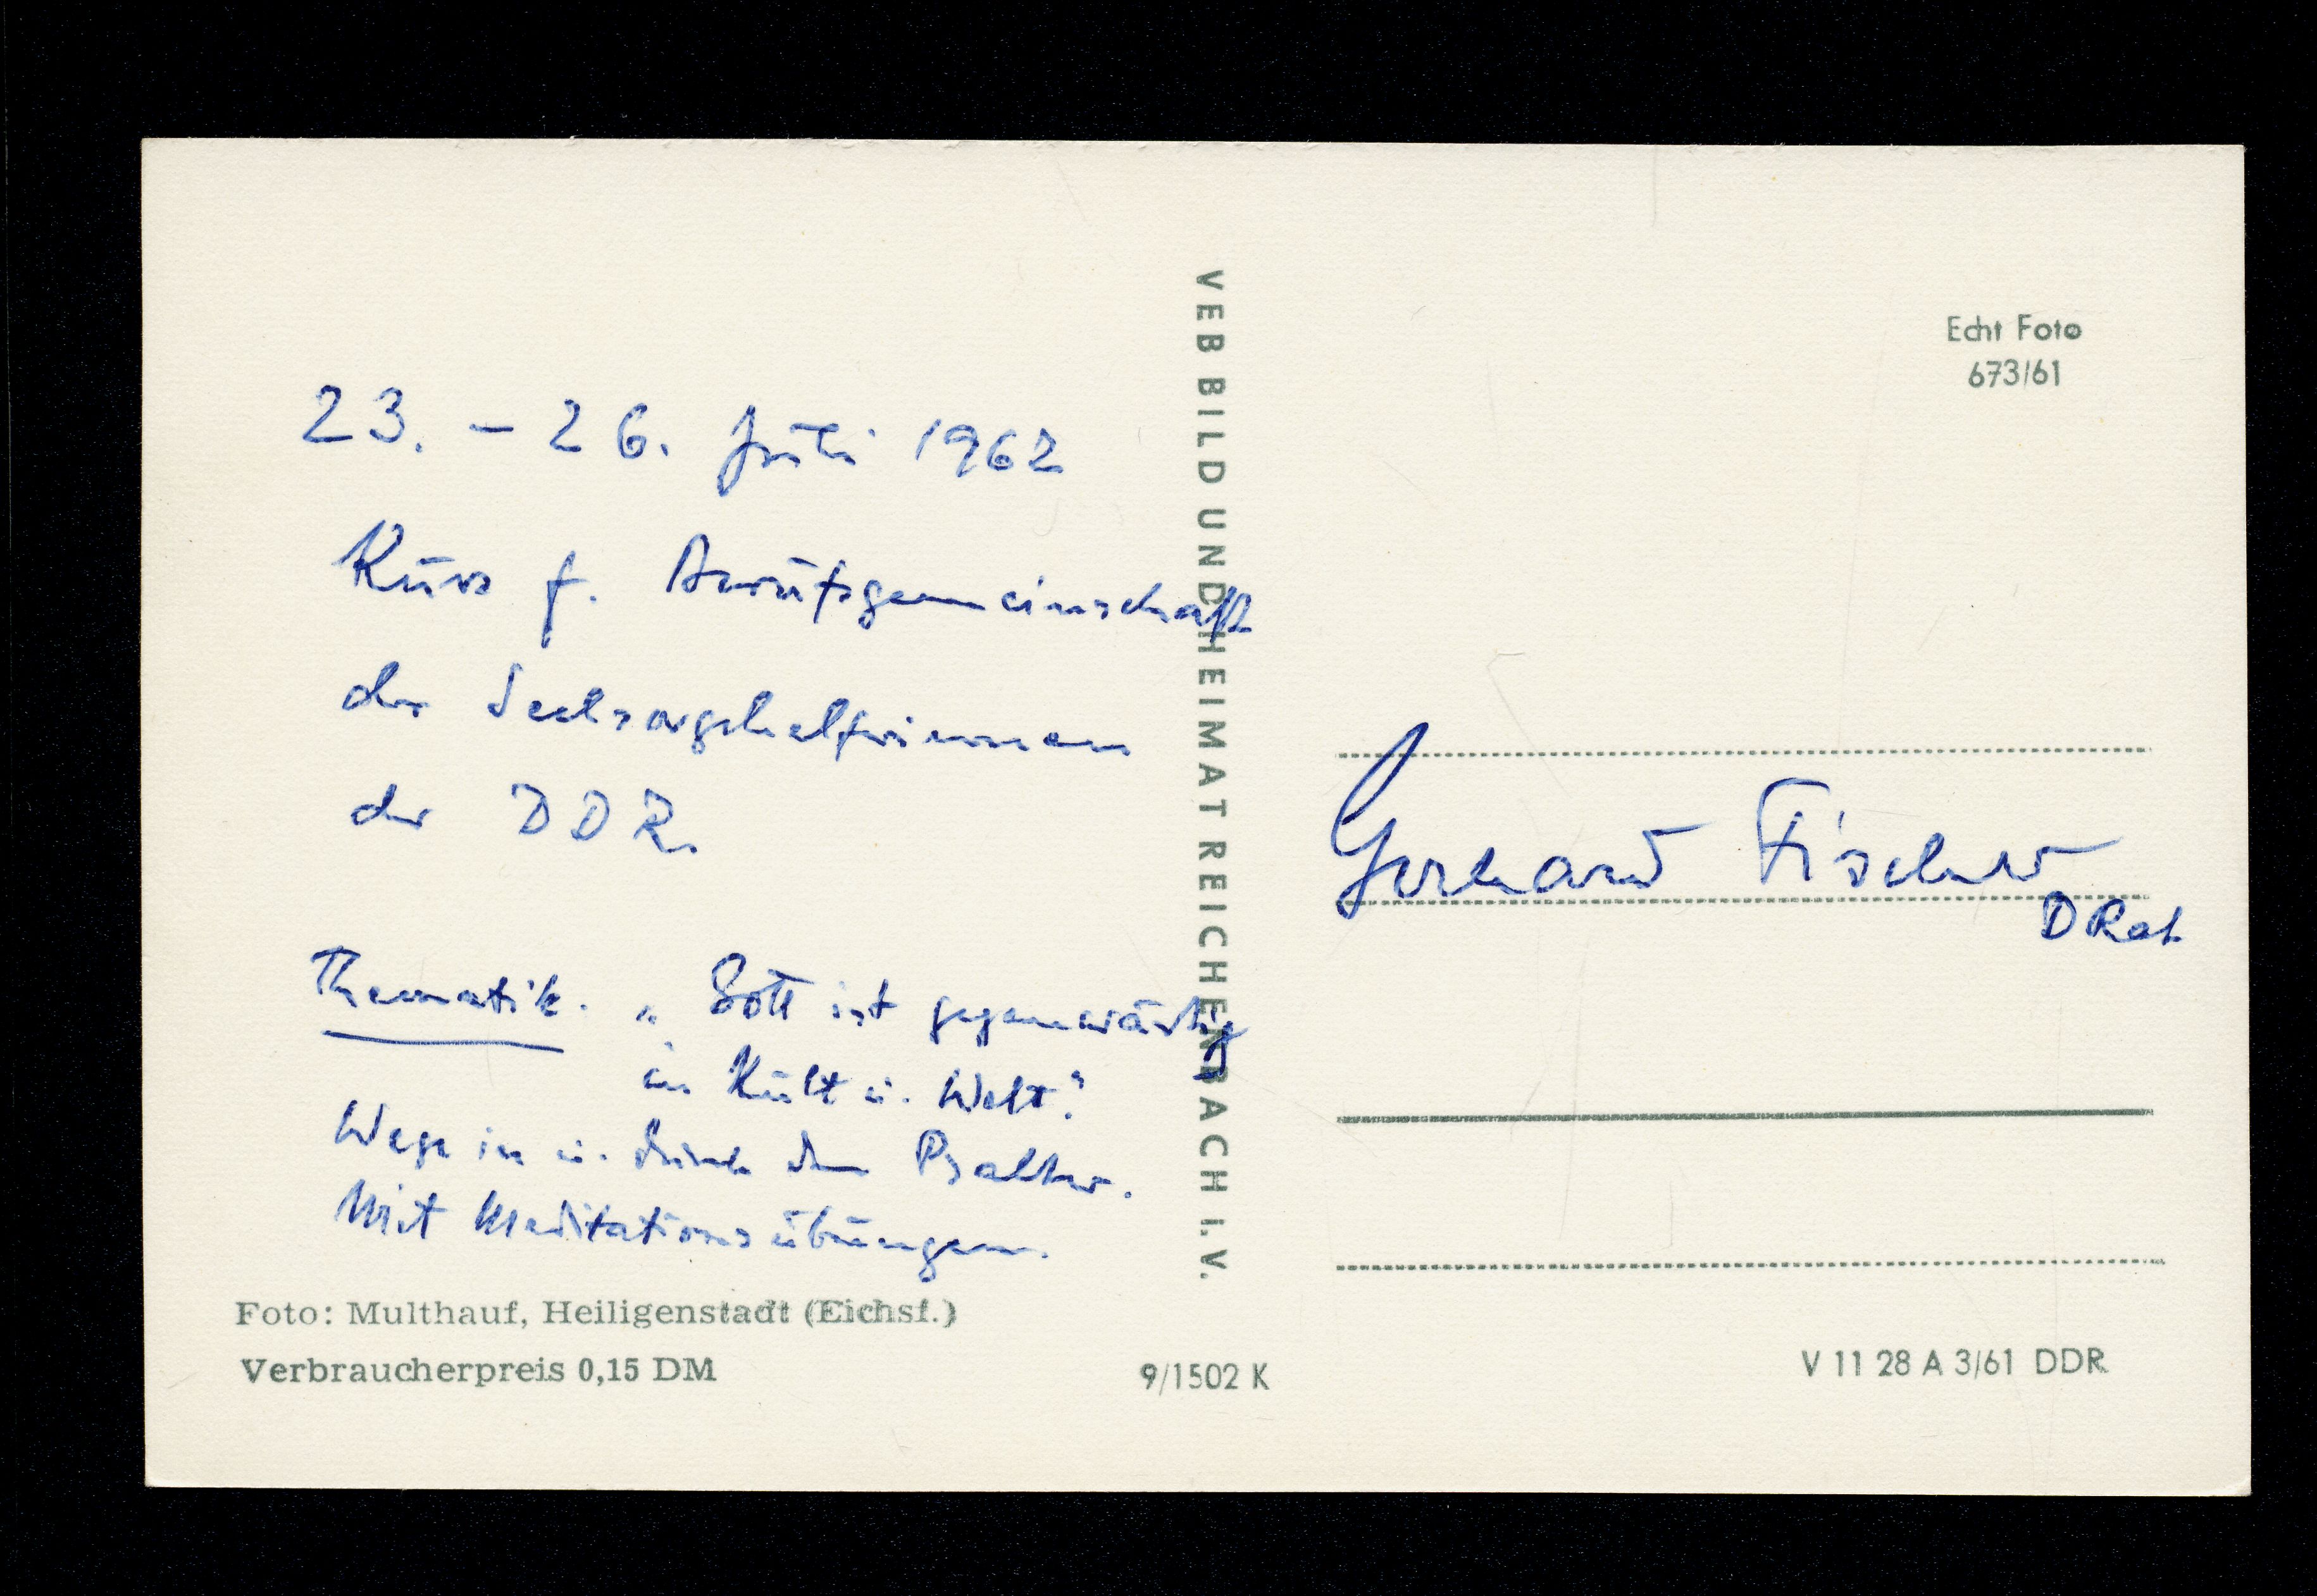 23. - 26. Juli 1962
Kurs f. Berufsgemeinschaft
der Seelsorgehelferinnen
der DDR.
Thematik. „Gott ist gegenwärtig
in Kult u. Welt."
Wege in u. durch den Psalter.
Mit Meditationsübungen.
Foto: Multhauf, Heiligenstadt (Eichsf.)
Verbraucherpreis 0,15 DM
9/1502 K
VEB BILD UND HEIMAT REICHENBACH I.V.
Echt Foto
673/61
Gerhard Fischer
D Rat
V 11 28 A 3/61 DDR